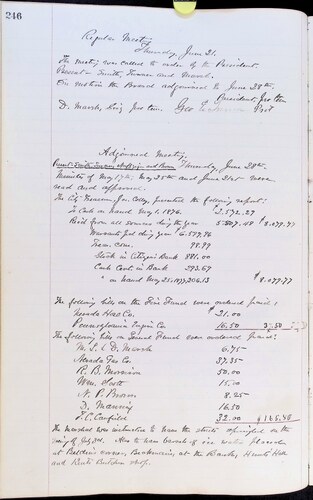 246
Regular Meeting
Thursday June 21.
The meeting was called to order by the President.
Present Smith, Turner and Marsh.
On motion the Board adjourned to June 28th.
President Pro tem
D. Marsh, Clerk Pro tem. Geo Pres't
Adjourned Meeting
Thursday June 28th.
Minutes of May 17th, May 25th and June 21st were
read and approved.
The City Treasurer, Geo. Colley, presented the following report:
To Cash on hand May 1, 1876. 2,572.27
Rec'd from all sources during the year 5,507.48 $8,079.77
Warrants pd during year 6,577.76
Treas. com. 98.99
Stock in Citizens Bank 881.00
Cash Cost in Bank 293.67
" on hand May 25, 1877, 206.13 $8,079.77
The following bills on the Fire Fund were ordered paid:
Nevada Gas Co. $21.00
Pennsylvania Engine Co. 16.50 37.50
The following bills on General Fund were ordered paid:
M. S. & D. Marsh 6.75
Nevada Gas Co. 37.35
R. B. Morrison 50.00
Wm. Scott 15.00
N. P. Brown 8.25
D. Manning 16.50
F. C. Canfield 32.00 $165.48
The Marshal was instructed to have the streets sprinkled on the
of July 3rd. Also to have barrels of ice water placed
at Belden's corner, at the Banks, Hunts Hill
and shop.